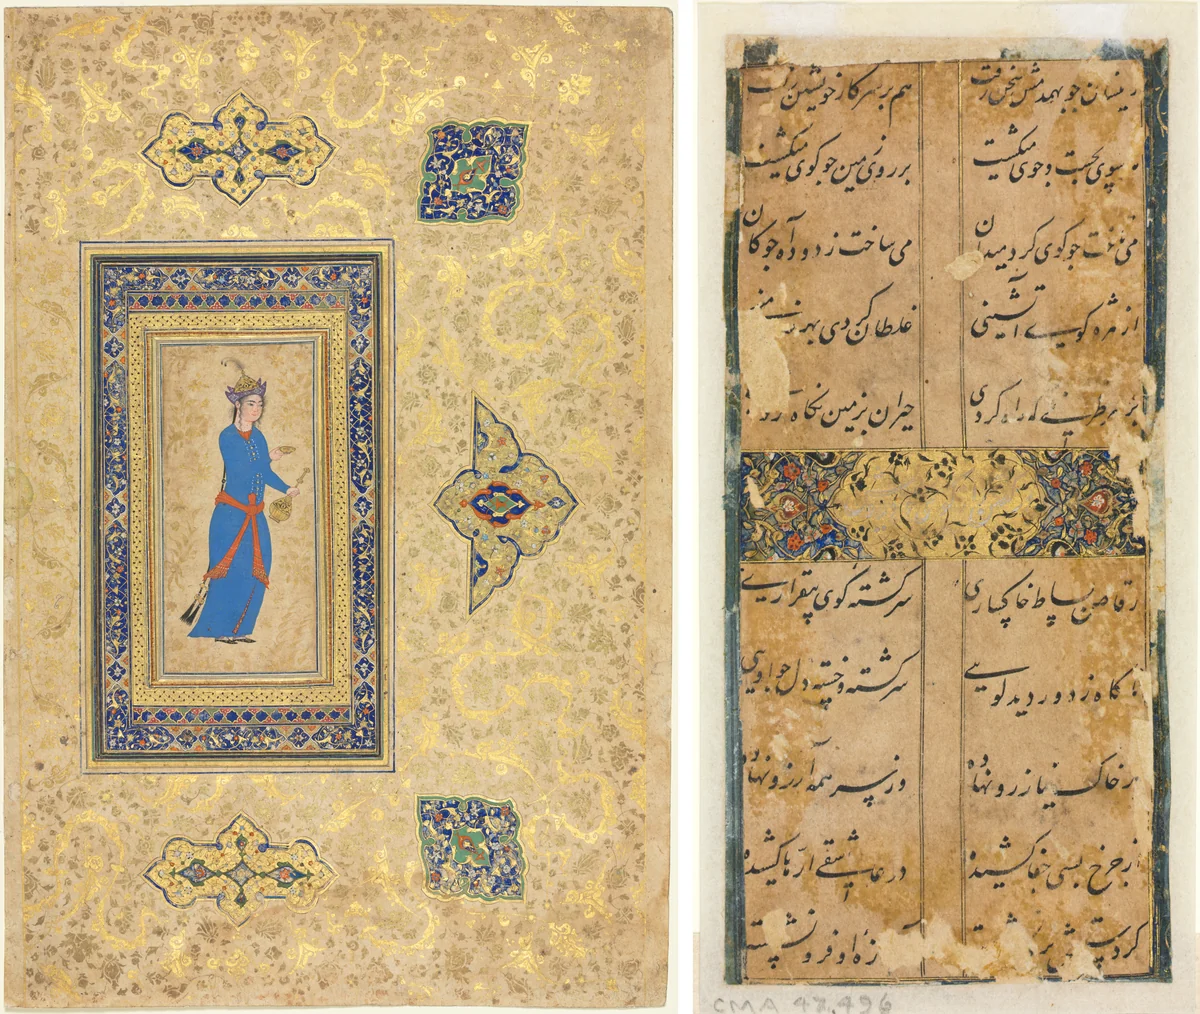 زینسان چو بهمدمش سخن رفت هم بر سر کار خویشتن رفت
هر سوی بجست و جوی میکشت بر روی زمین چو کوی میکشت
می تاخت چو کوی کرد میدان می ساخت ز دود آه چوکان
از مژه کویی آتشینی غلطان کردی بهر زمینی
بر هر طرفی که راه کردی حیران بزمین نکاه کردی
رقاص بساط خاکساری سرکشته کوی بیقراری
ناکاه ز دور دید کویی سرکشته و خسته دل چو اویی
بر خاک نیاز رو نهاده وز سر همه آرزو نهاده
از چرخ بسی جفا کشیده در عاشقی ارها کشیده
او فرو نشسته
CMA 47.496